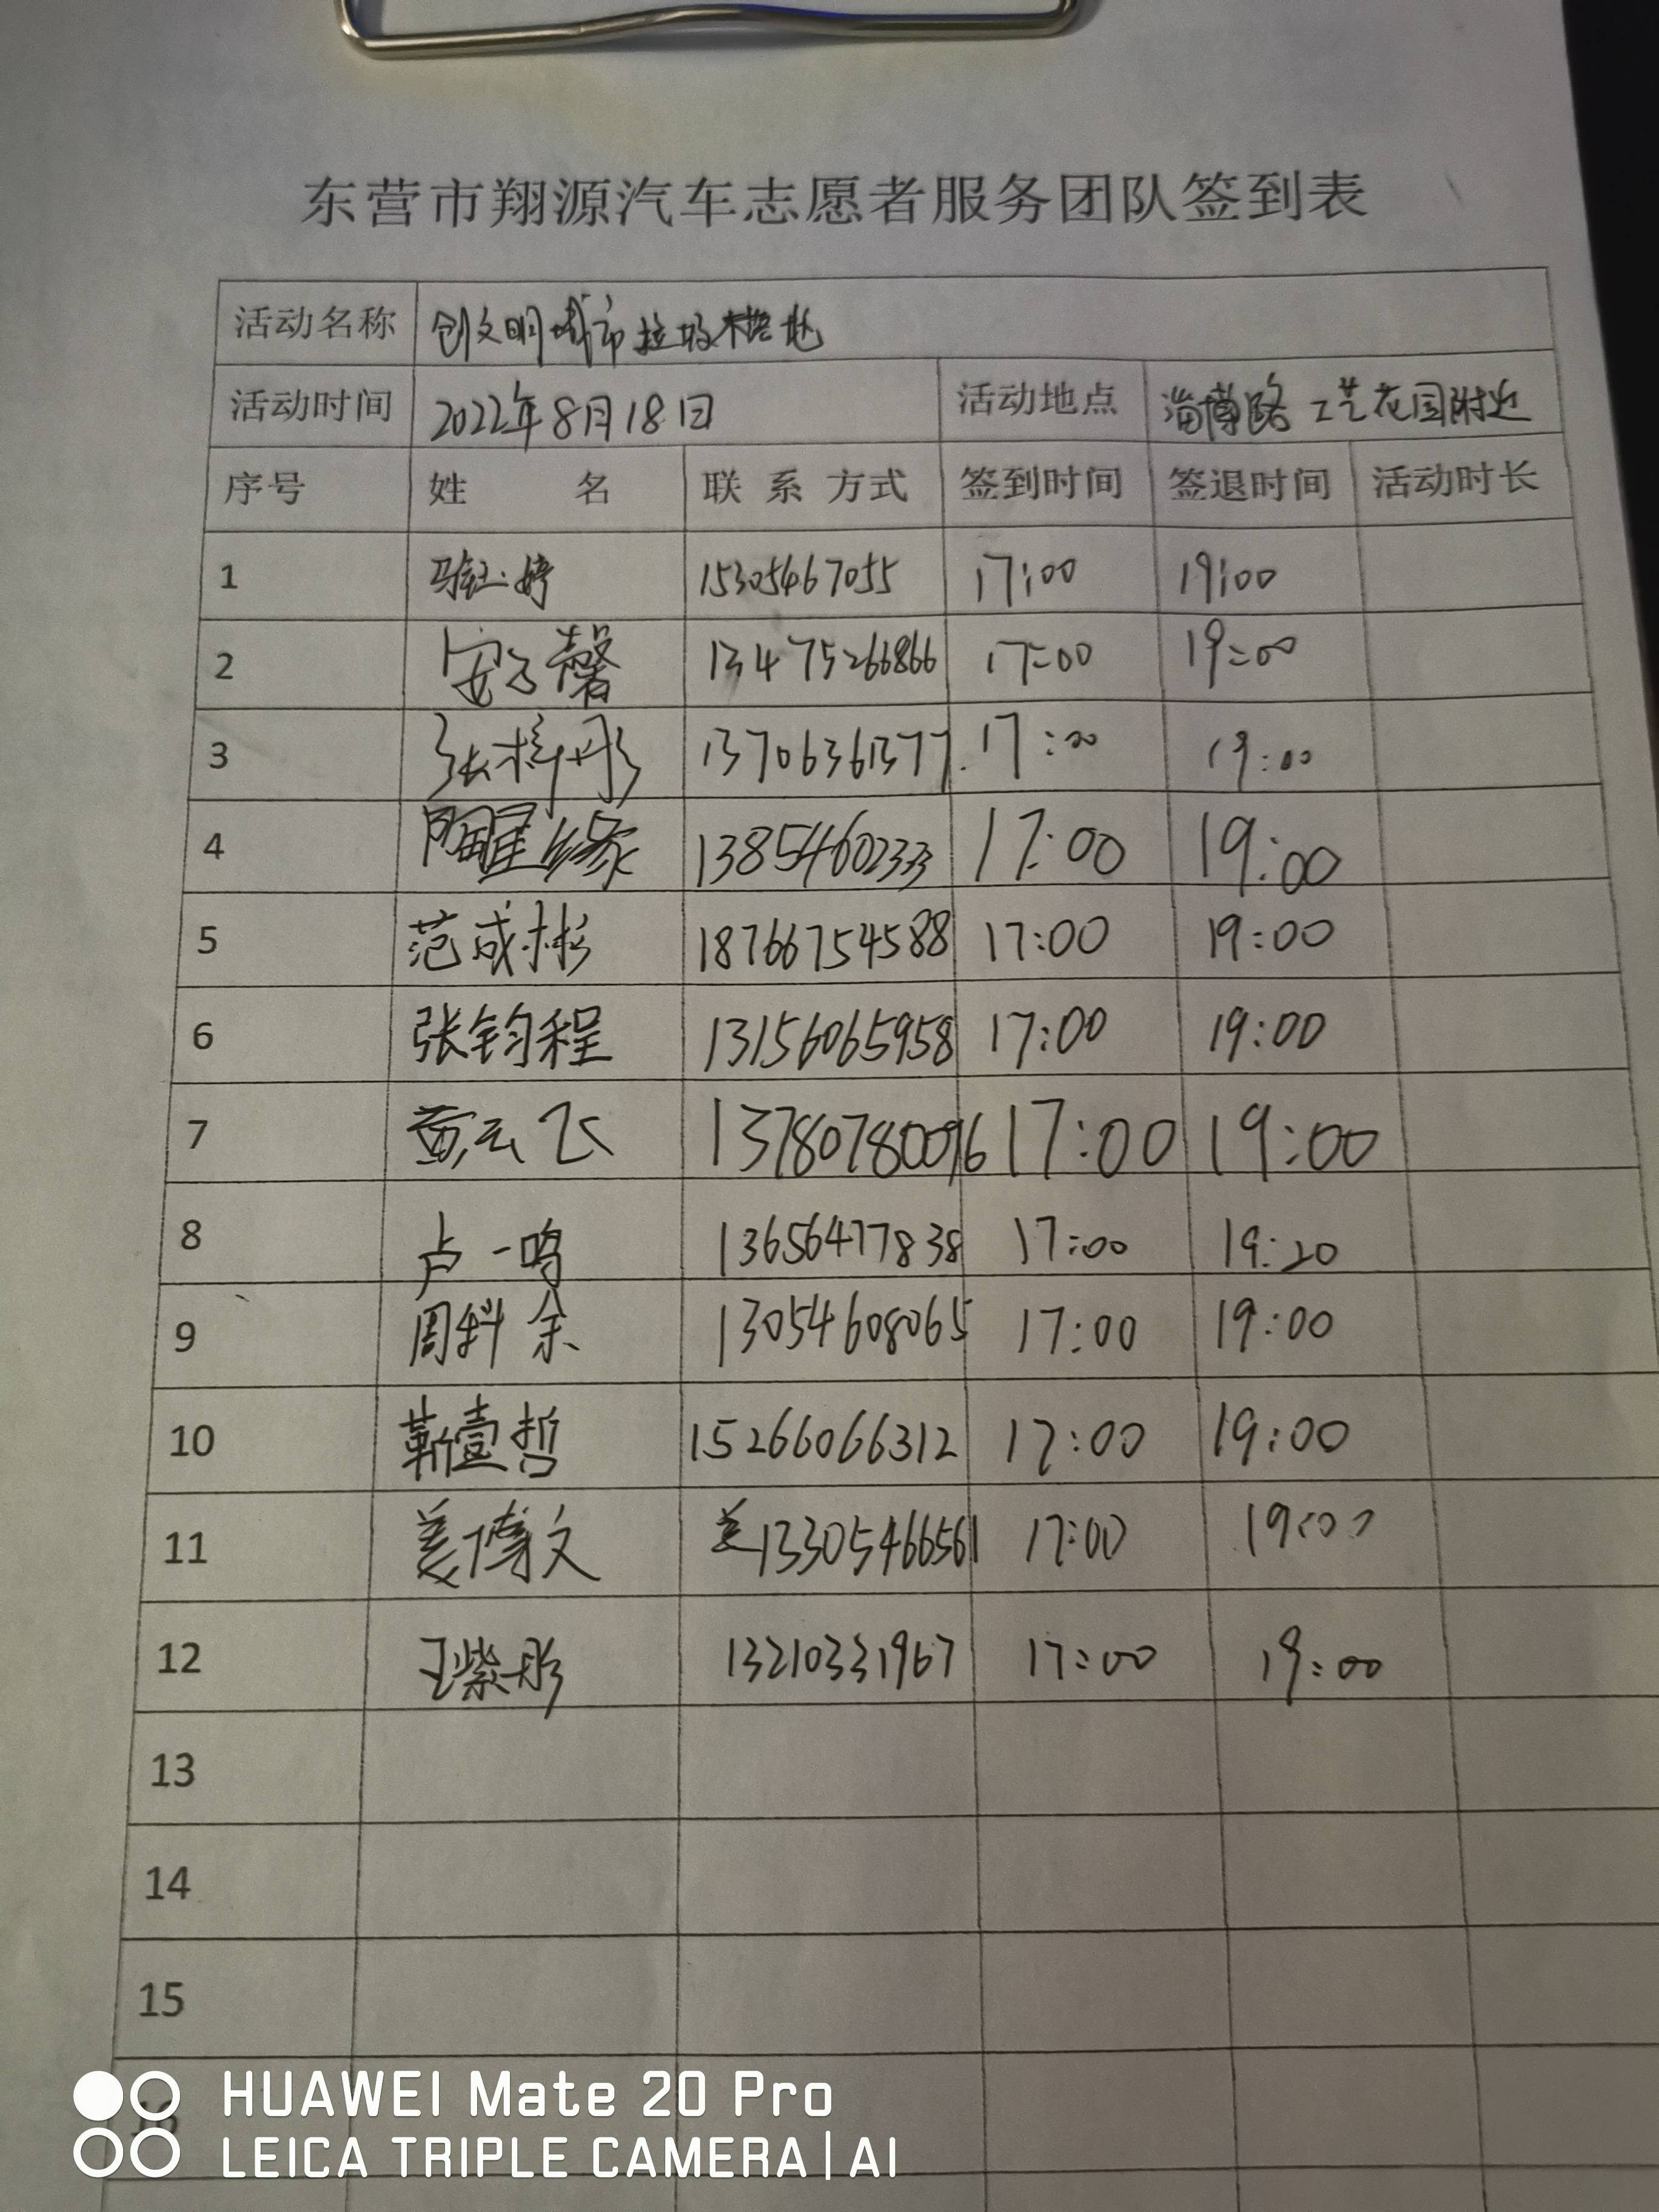 东营市翔源汽车志愿者服务团队签到表
活动名称 创文明城市 垃圾 地
活动时间 2022年8月18日 活动地点 淄博路 工艺花园附近
序号 姓 名 联 系 方式 签到时间 签退时间 活动时长
1 婷 15305467055 17:00 19:00
2 安子馨 13475266866 17:00 19:00
3 张梓彤 13706361377 17:00 19:00
4 陶醒缘 13854602333 17:00 19:00
5 范成彬 18766754588 17:00 19:00
6 张钧程 13156065958 17:00 19:00
7 黄云飞 13780780096 17:00 19:00
8 卢一鸣 13656477838 17:00 19:20
9 周 余 13054608065 17:00 19:00
10 靳壹哲 15266066312 17:00 19:00
11 姜博文 13305466561 17:00 19:00
12 王紫彤 13210331967 17:00 19:00
13
14
15
16
HUAWEI Mate 20 Pro
LEICA TRIPLE CAMERA | AI